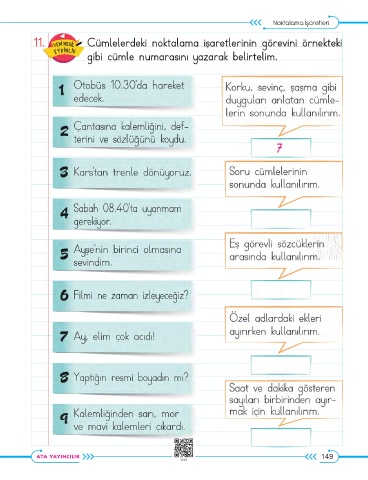 Noktalama İşaretleri
11. YENİ NESİL ETKİNLİK
Cümlelerdeki noktalama işaretlerinin görevini örnekteki
gibi cümle numarasını yazarak belirtelim.
1 Otobüs 10.30'da hareket
edecek.
2 Çantasına kalemliğini, def-
terini ve sözlüğünü koydu.
3 Kars'tan trenle dönüyoruz.
4 Sabah 08.40'ta uyanmam
gerekiyor.
5 Ayşe'nin birinci olmasına
sevindim.
6 Filmi ne zaman izleyeceğiz?
7 Ay, elim çok acıdı!
8 Yaptığın resmi boyadın mı?
9 Kalemliğinden sarı, mor
ve mavi kalemleri çıkardı.
Korku, sevinç, şaşma gibi
duyguları anlatan cümle-
lerin sonunda kullanılırım.
7
Soru cümlelerinin
sonunda kullanılırım.
Eş görevli sözcüklerin
arasında kullanılırım.
Özel adlardaki ekleri
ayırırken kullanılırım.
Saat ve dakika gösteren
sayıları birbirinden ayır-
mak için kullanılırım.
ATA YAYINCILIK
149